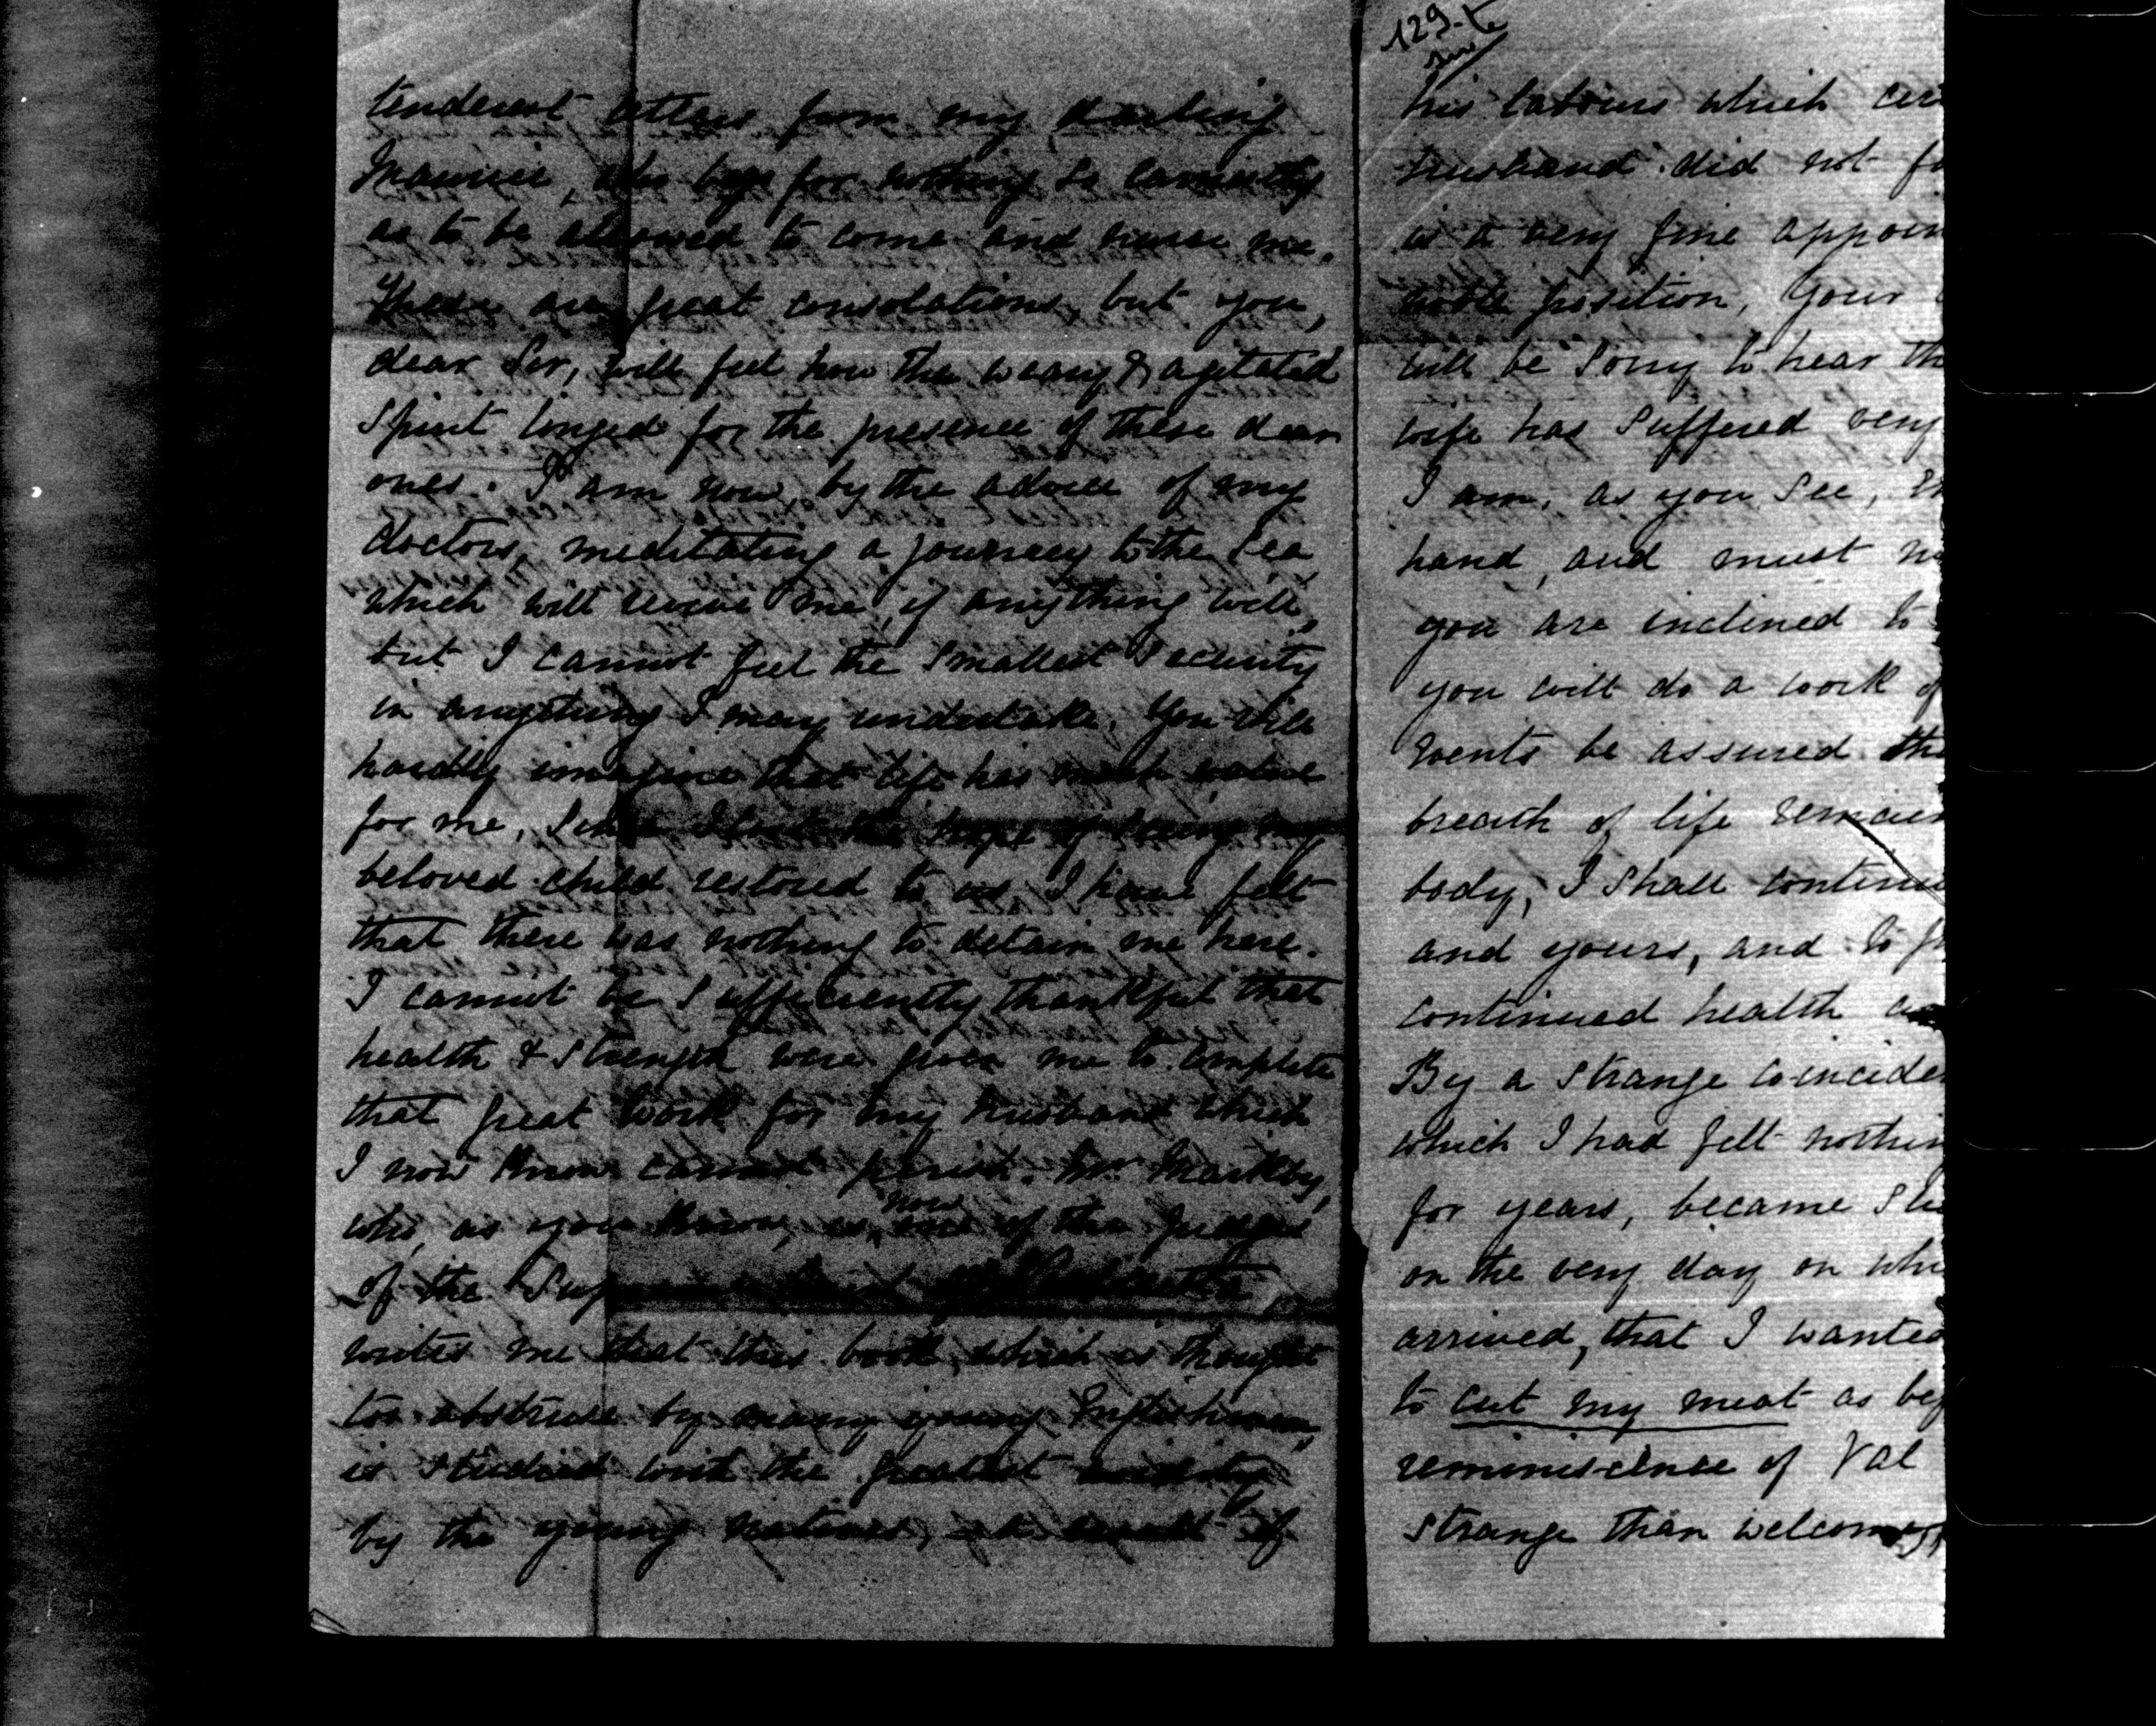 tenderest letters from my darling
Maurice, who begs for nothing so earnestly
as to be allowed to come and nurse me.
These are great consolations, but you,
dear Sir, will feel how the weary & agitated
spirit longed for the presence of these dear
ones. I am now, by the advice of my
doctors, meditating a journey to the Sea
which will revive me, if anything will,
but I cannot feel the smallest security
in anything I may undertake. You will
hardly imagine that life has much value
for me, Since I lost the hope of seeing my
beloved child restored to us I have felt
that there was nothing to detain me here.
I cannot be sufficiently thankful that
health & strength were given me to complete
that great work for my husband which
I now know cannot perish. Mr Markby,
who, as you know, is now one of the Judges
of the Supreme Court of Calcutta,
writes me that this book, which is thought
too abstruse by many young Englishmen,
is studied with the greatest avidity
by the young natives, a result of
129-te
his labours which cer
husband did not fo
is a very fine appoin
noble position, Your
will be sorry to hear th
wife has suffered very
I am, as you see,
hand, and must n
you are inclined to
you will do a work of
events be assured tha
breath of life remain
body, I shall continu
and yours, and to
continued health an
By a strange coinciden
which I had felt nothin
for years, became
on the very day on whi
arrived, that I wanted
to cut my meat as bef
reminiscence of Val
strange than welcome,